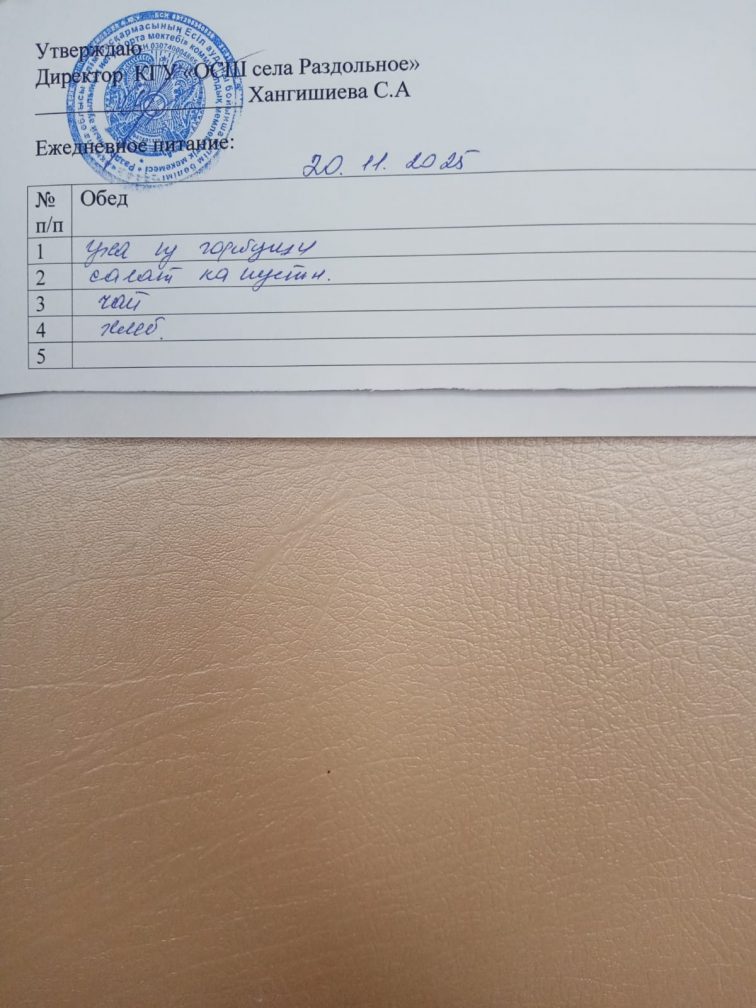 Утверждаю
Директор КГУ «ОСШ села Раздольное»
Хангишиева С.А
Ежедневное питание:
20. 11. 2025
№ п/п Обед
1 уха из горбуши
2 салат капустн.
3 чай
4 хлеб.
5